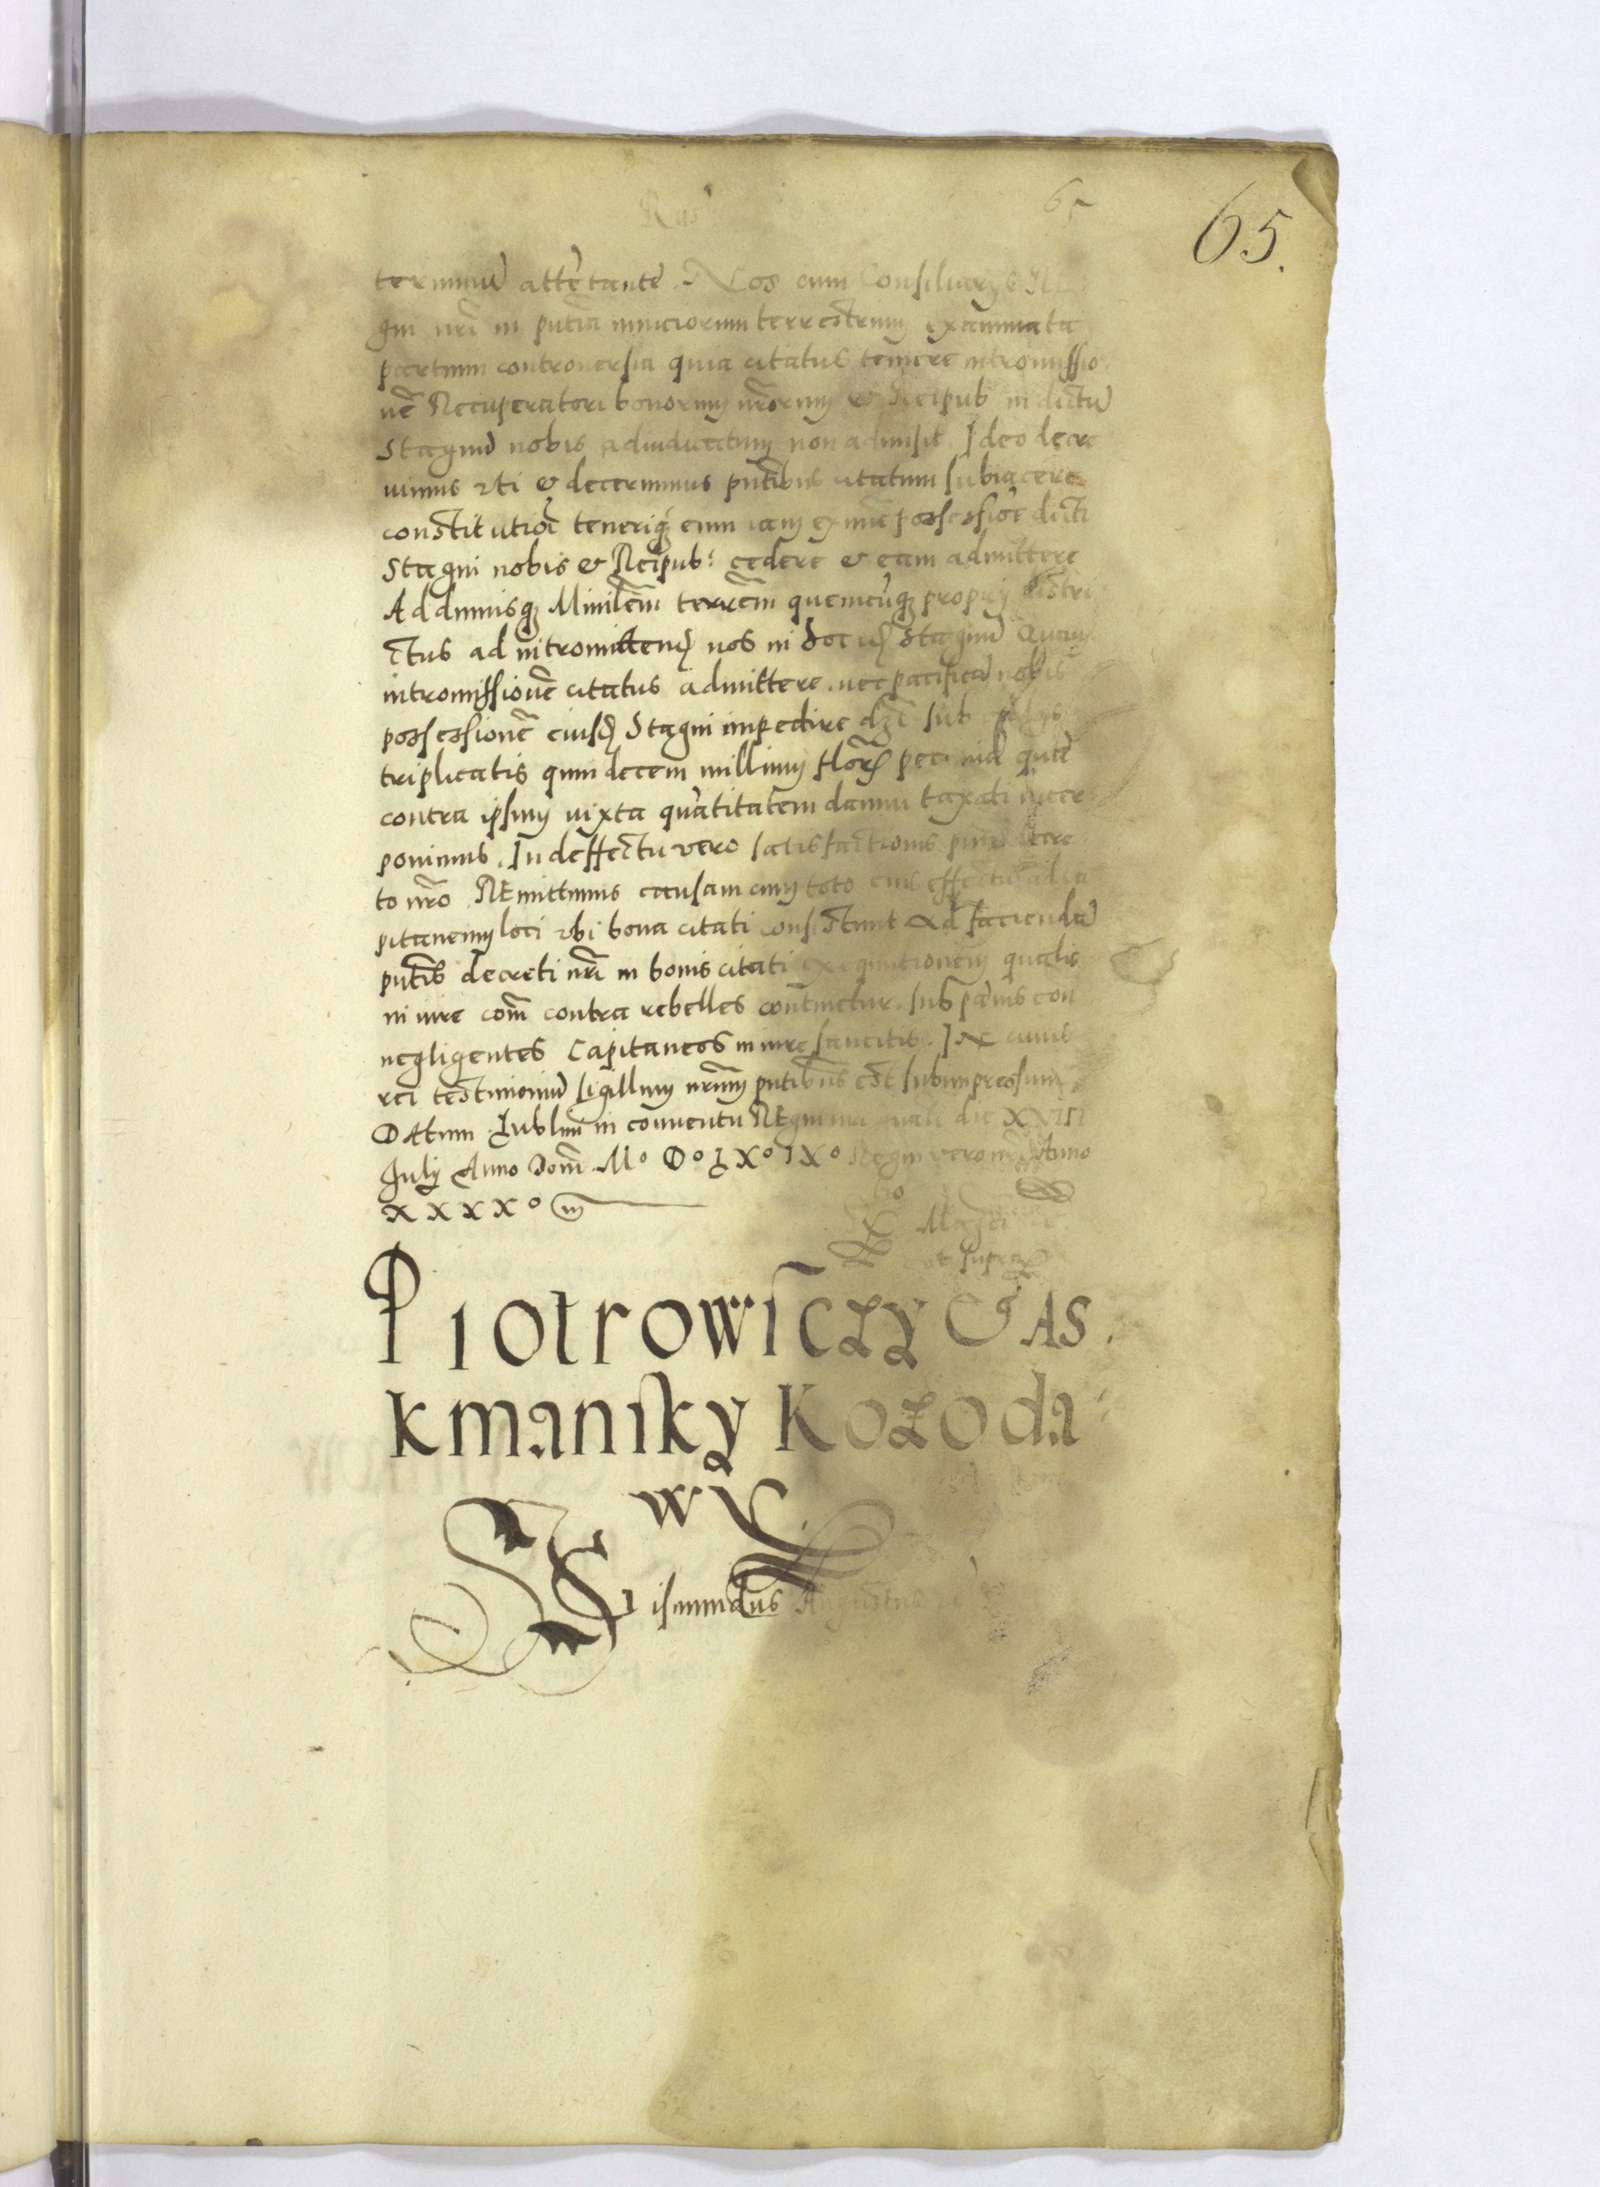 Rus
65
65.
terminū attētante. Nos cum Consiliarijs Re
gni nr̃i in pn̄tia nunciorum terrestrium examinata
partium controuersia quia citatus temere intromissio
nē Recuperatori bonorum nr̃orum & Reipub in dictū
Stagnū nobis adiudicatum non admisit. Ideo decre
uimus vti & decernimus pn̄tibus citatum subiacere
constitutiōi teneriq̃ eum iam ex nūc possessiōe dicti
Stagni nobis & Reipub: cedere & eam admittere
Addimusq̃ Minilēm terrēm quemcūq̃ proprij distri
ctus ad intromittend̃ nos in hoc id̃ Stagnū Quam
intromissionē citatus admittere. nec pacificā nobis
possessionē eiusd̃ Stagni impedire d sub
triplicatis quindecem millium flor̃ pecuniā quā
contra ipsum iuxta quātitatem damni taxati inter
ponimus. In deffectu vero satisfactionis pn̄ti decre
to nr̃o REmittimus causam cum toto eius effectu ad Ca
pitaneum loci vbi bona citati consistunt Ad faciendā
pn̄tis decreti nr̃i in bonis citati exequutionem qualis
in iure com̃ contra rebelles continetur. sub pænis con
negligentes Capitaneos in iure sancitis. IN cuius
rei testimoniū sigillum nr̃um pn̄tibus est subimpressum
DAtum Lublini in conuentu REgni die XXVIII
Julij Anno Dom̃. Mº Dº LXº IXº Regni vero nr̃i Anno
XXXXº
Piotrowsczy & As
kmansky Kozoda
w
Sisimundus Augustus